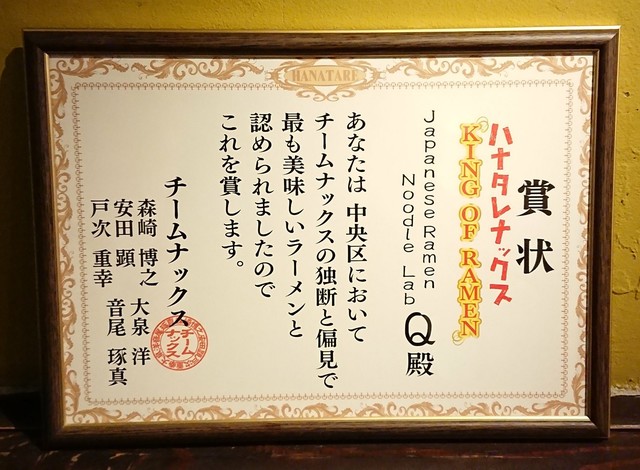 HANATARE
賞状
ハナタレナックス
KING OF RAMEN
Japanese Ramen
Noodle Lab Q殿
あなたは 中央区において
チームナックスの独断と偏見で
最も美味しいラーメンと
認められましたので
これを賞します。
チームナックス
森崎 博之 大泉 洋
安田 顕 音尾 琢真
戸次 重幸
チーム
ナックス